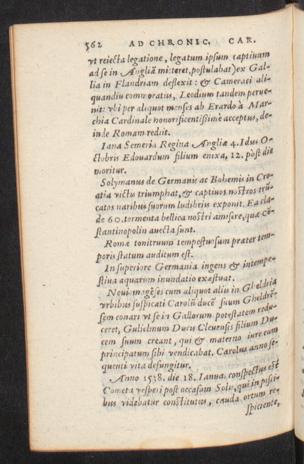 562 AD CHRONIC. CAR.
vt reiecta legatione, legatum ipsum captiuum
ad se in Angliã mitteret, postulabat) ex Gal-
lia in Flandriam deflexit: & Cameraci ali-
quandiu commoratus, Leodium tandem perue-
nit: vbi per aliquot menses ab Erardo à Mar-
chia Cardinale honorificentissimè acceptus, de-
inde Romam rediit.
Iana Semeria Regina Angliæ 4. Idus O-
ctobris Edouardum filium enixa, 12. post die
moritur.
Solymanus de Germanis ac Bohemis in Cro-
atia victis triumphat, & captiuos nostros trũ-
catis naribus suorum ludibris exponit. Ea cla-
de 60. tormenta bellica nostri amisere, quæ Cõ-
stantinopolin auecta sunt.
Romæ tonitruum tempestuosum præter tem-
poris statum auditum est.
In superiore Germania ingens & intempe-
stiua aquarum inundatio exæstuat.
Noui motus cum aliquot aliis in Gheldria
vrbibus suspicati Carolũ ducẽ suum Gheldrẽ-
sem conari vt se in Gallorum potestatem redu-
ceret, Gulielmum Ducis Cleuensis filium Du-
cem suum creant, qui & materno iure eum
principatum sibi vendicabat. Carolus anno se-
quenti vita defungitur.
Anno 1538. die 18. Ianua. conspectus est
Cometa vesperi post occasum Solis, qui in pisci-
bus videbatur constitutus, cauda ortum re-
spiciente,